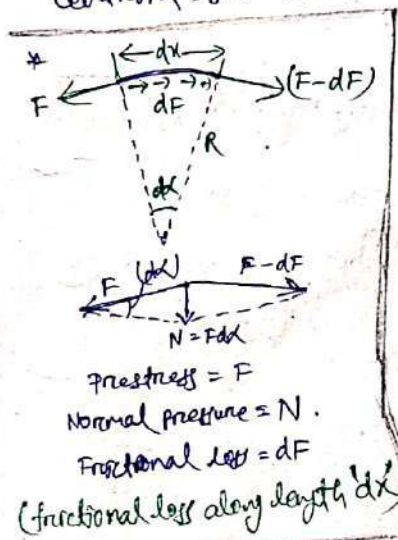 *
←dx→
F
→ → → →
(F-dF)
dF
R
dα
F
(dα)
F-dF
N = Fdα
Prestress = F
Normal pressure = N.
Frictional loss = dF
(frictional loss along length 'dx'